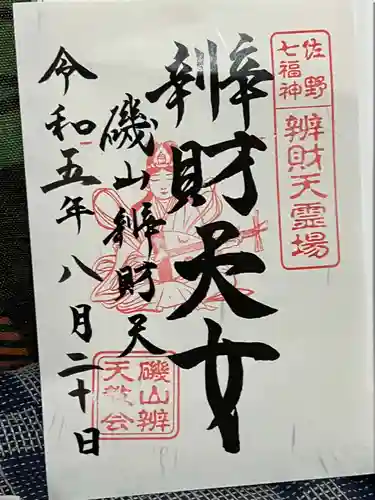 佐野
七福神
辨財天霊場
辨財天女
磯山辨財天
令和五年八月二十日
磯山辨
天敬会